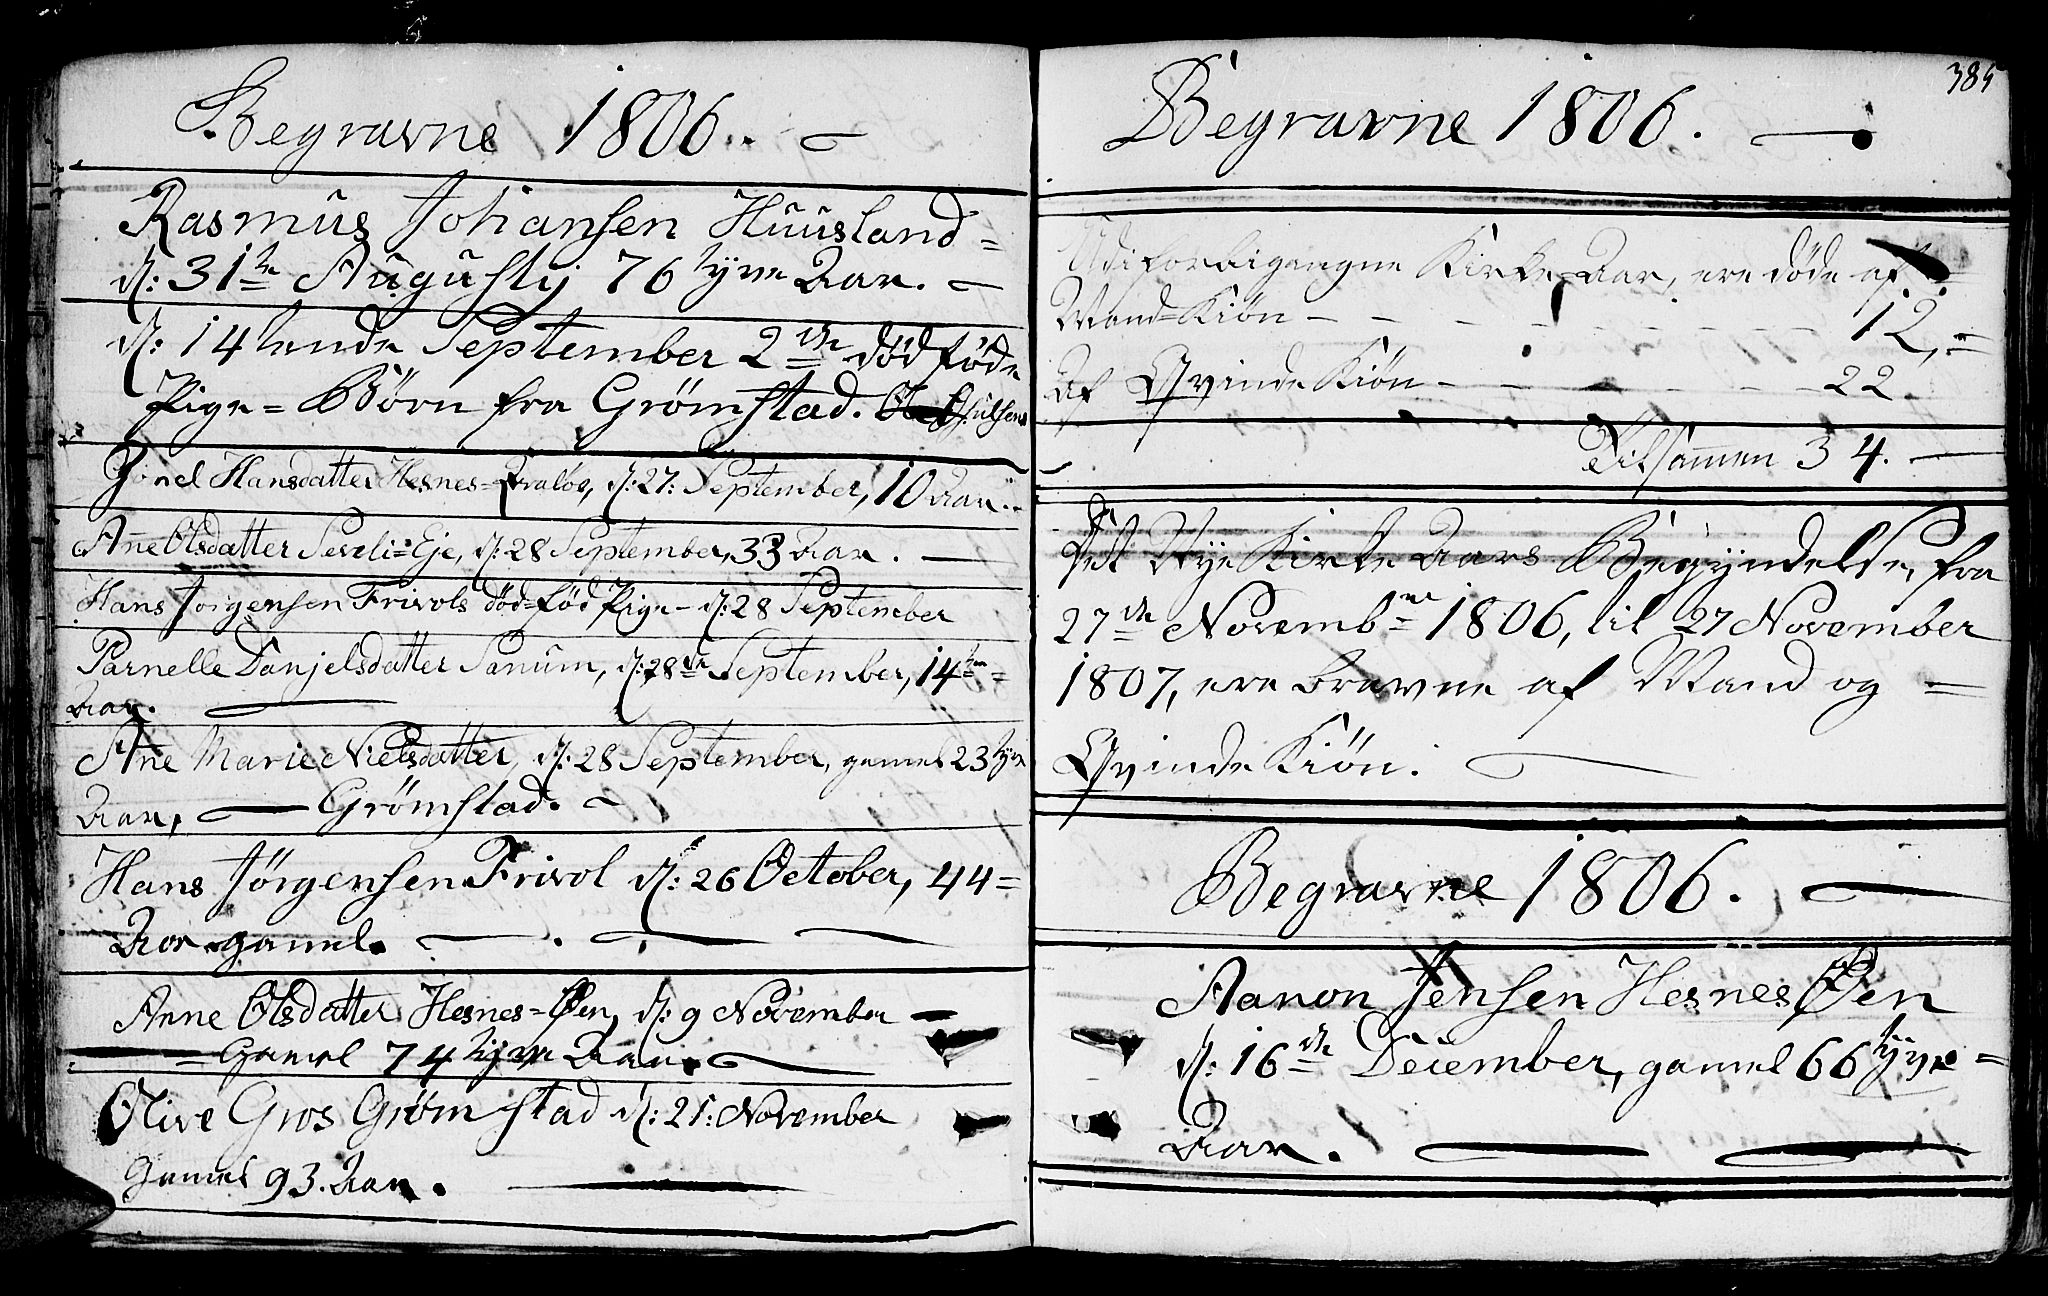 Begravne 1806.
Rasmus Johansen Huusland =
d: 31te Augustij 76 tyve Aar.
d: 14tende September 2de dödföde
Pige = Börn fra Grömstad.
Hansdatter Hesnes= d: 27: September, 10 Aar.
Añe Olsdatter Eje, d: 28 September, 33 Aar.
Hans Jörgensen Frivols död=fød Pige - d: 28 September
Parnelle Danjelsdatter Sanum, d: 28de September, 14ten =
Aar.
Añe Marie Nielsdatter, d: 28 September, gamel 23 tyve
Aar, Grömstad.
Hans Jörgensen Frivol d: 26 October, 44 =
Aar gamel.
Anne Olsdatter Hesnes=Øen, d: 9 November
Gamel 74 tyve Aar.
Olive Gros Grömstad d: 21: November
Gamel 93. Aar.
385
Begravne 1806.
Udi forbigangne Kirke=Aar, ere döde af
Mand=Kiön - - - - - - - 12, =
Af Qvinde Kiön - - - - - - 22.
Tilsam̃en 34.
Det Nye Kirke Aars Begyndelse, fra
27de Novembr 1806, til 27 November
1807, ere bravne af Mand og =
Qvinde Kiön.
Begravne 1806.
Aanon Jensen Hesnes Øen
d: 16de December, gamel 66 tyve =
Aar.